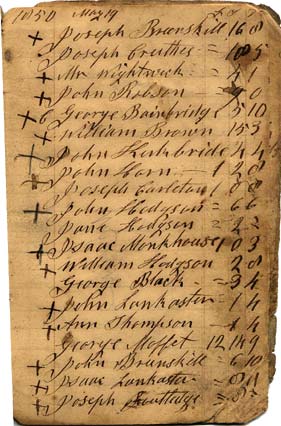 1850 May 19
+ Joseph Brunskill 16 8
Joseph Cruthers = 18 5
+ Mr Wightwick = 4 1
+ John Robson 0
+ George Bainbridge 5 10
+ William Brown 15 3
+ John Kirkbride 4 4
+ John Horn - 1 2 8
Joseph Earleton 1 0 8
+ John Hodgson = 6 6
+ Jane Hodgson = 2 2
+ Isaac Monkhouse 1 0 3
+ William Hodgson 2 8
George Black = 3 4
+ John Lankaster = 1 4
+ Ann Thompson 4
George Moffet 12 14 9
+ John Brunskill = 6 10
+ Isaac Lankaster = 8
+ Joseph Routledge = 8